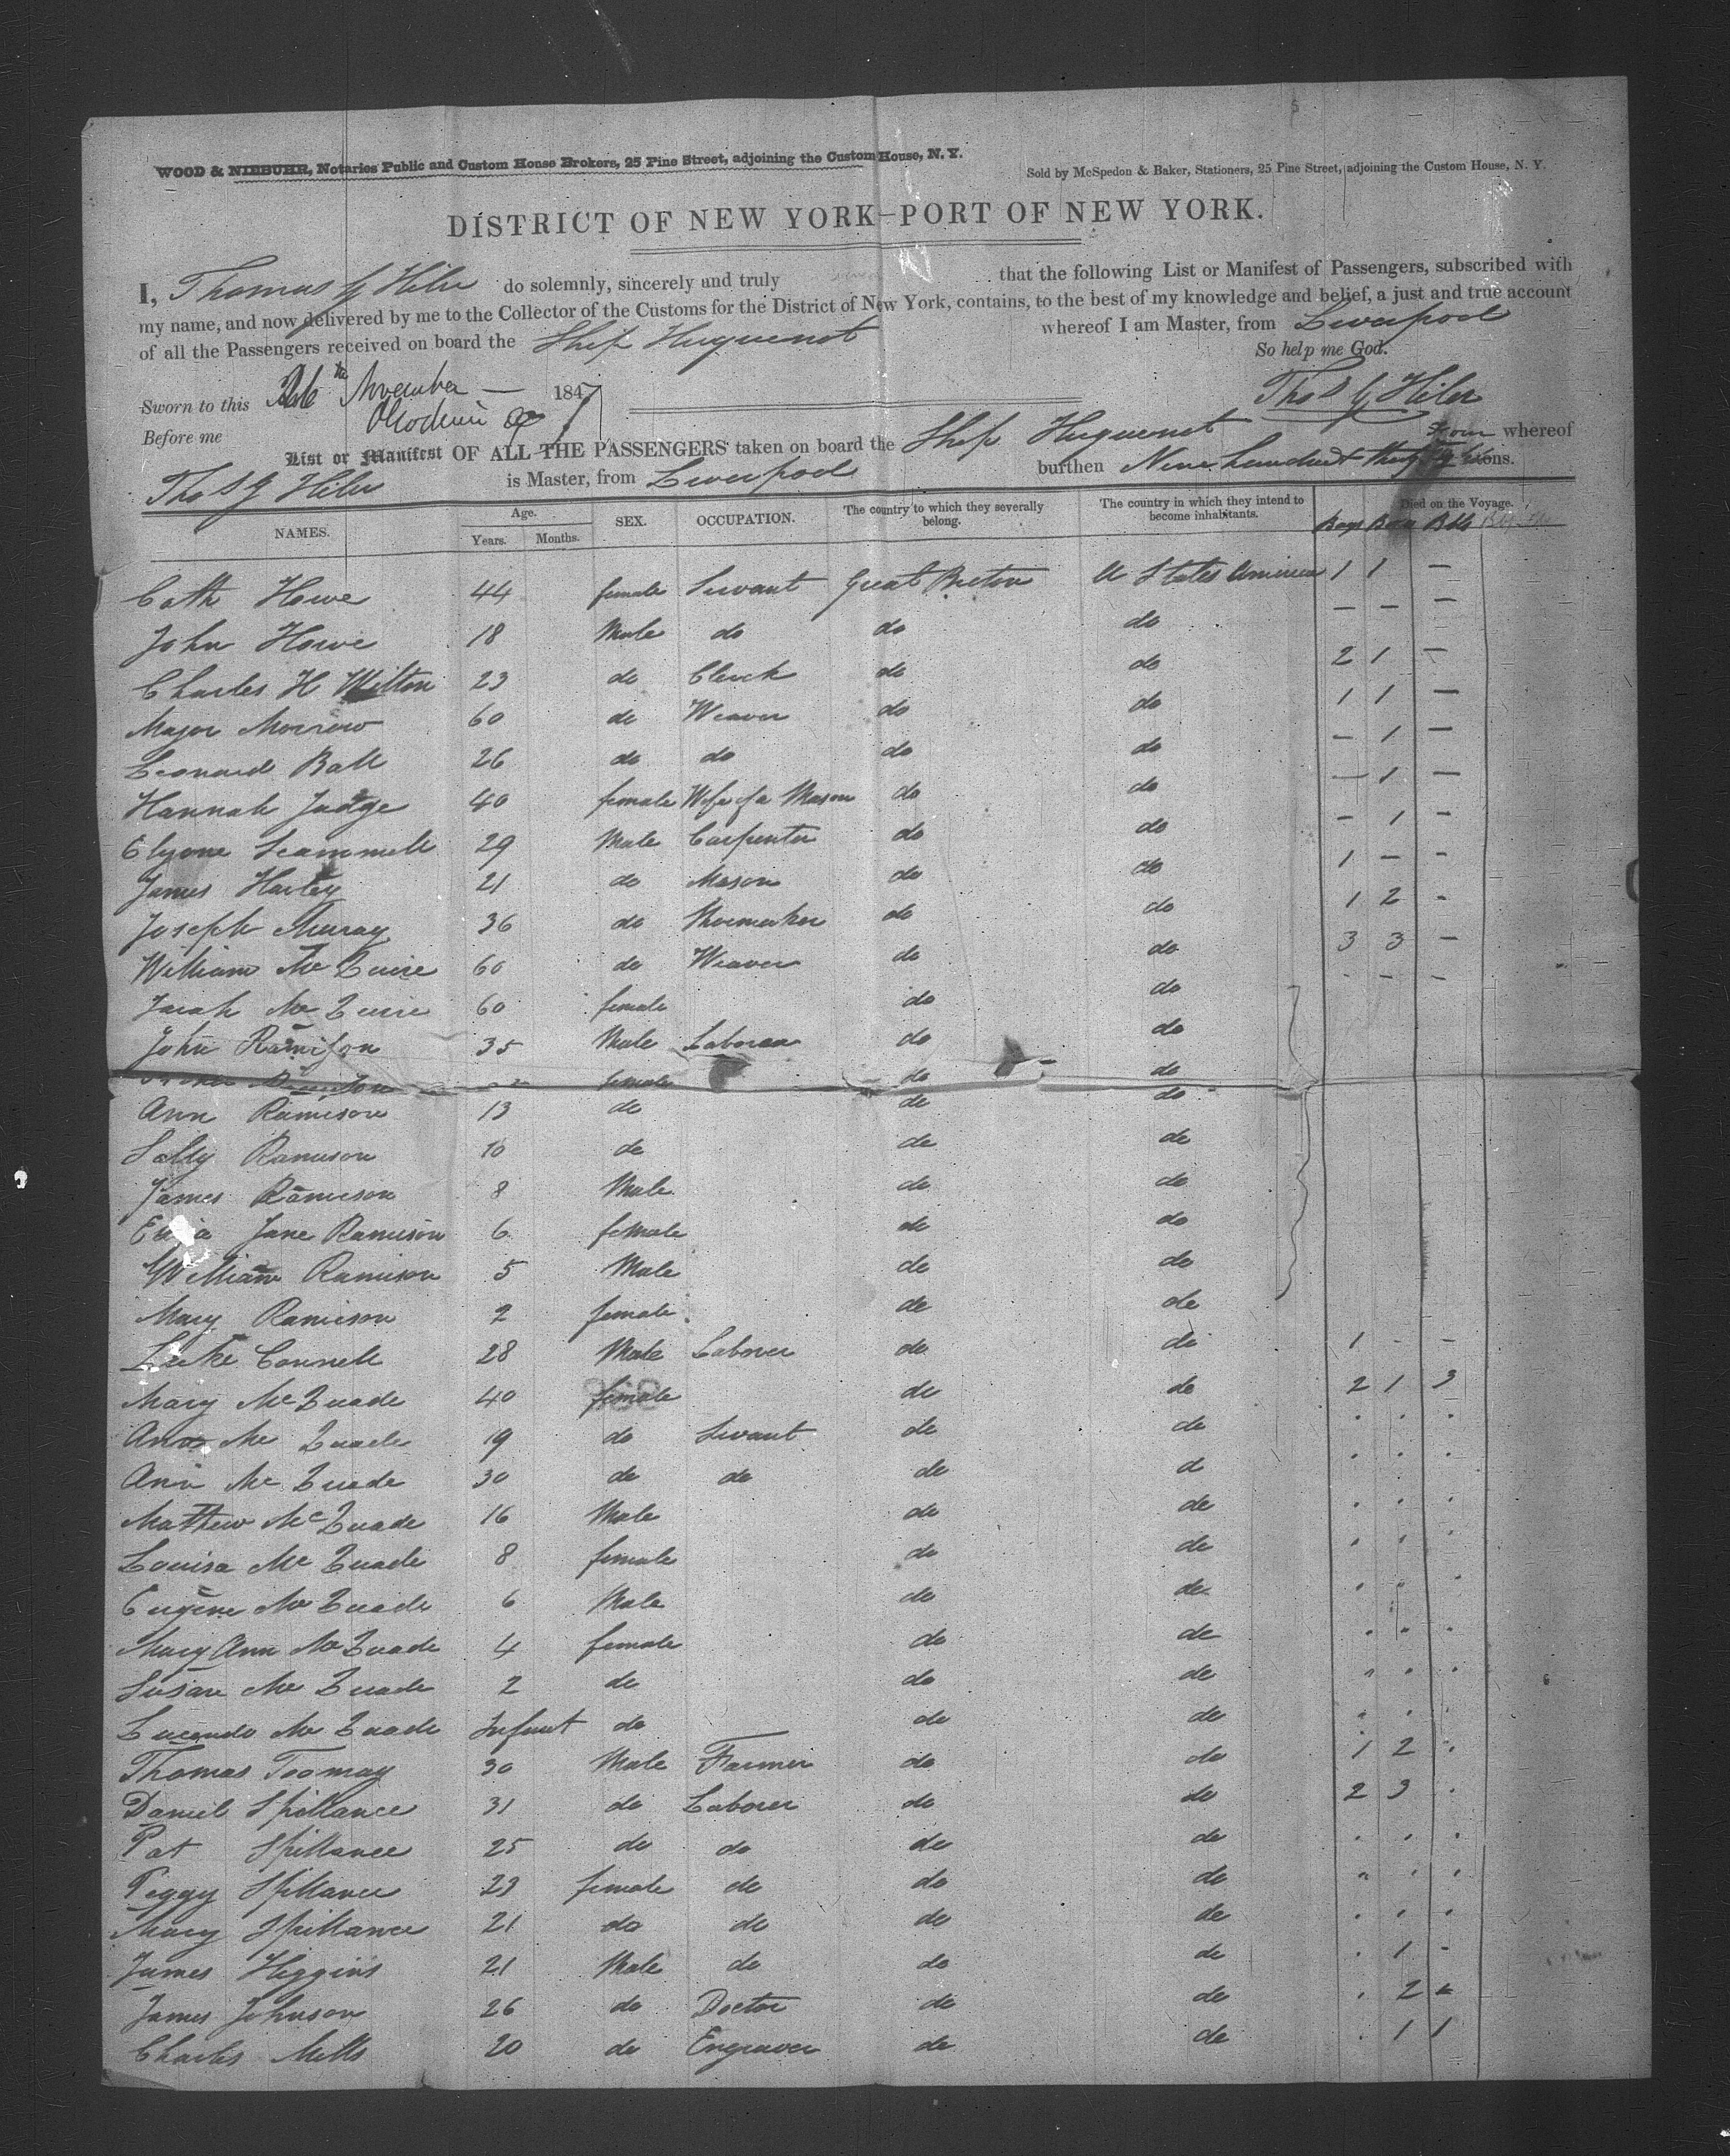 WOOD & NIEBUHR, Notaries Public and Custom House Brokers, 25 Pine Street, adjoining the Custom House, N. Y.
Sold by McSpedon & Baker, Stationers, 25 Pine Street, adjoining the Custom House, N. Y.
DISTRICT OF NEW YORK—PORT OF NEW YORK.
I, Thomas G Hiler do solemnly, sincerely and truly that the following List or Manifest of Passengers, subscribed with
my name, and now delivered by me to the Collector of the Customs for the District of New York, contains, to the best of my knowledge and belief, a just and true account
of all the Passengers received on board the Ship Huguenot whereof I am Master, from Liverpool
So help me God.
Sworn to this 26th November — 1847
Thos G Hiler
Before me
List or Manifest OF ALL THE PASSENGERS taken on board the Ship Huguenot whereof
Thos G Hiler is Master, from Liverpool burthen Nine hundred tons.
NAMES. Age. Years. Months. SEX. OCCUPATION. The country to which they severally belong. The country in which they intend to become inhabitants. Died on the Voyage.
Bags Boxes Bdls
Cath Howe 44 female Servant Great Breton U States America 1 1 —
John Howe 18 Male do do do — — —
Charles H Wilton 23 do Clerck do do 2 1 —
Major Morrow 60 do Weaver do do 1 1 —
Leonard Ball 26 do do do do — 1 —
Hannah Judge 40 female Wife of a Mason do do — 1 —
Scammell 29 Male Carpenter do do — 1 -
James Harley 21 do Mason do do 1 — -
Joseph Murray 36 do Shoemaker do do 1 2 -
William Mc Quire 60 do Weaver do do 3 3 —
Sarah Mc Quire 60 female do do - - -
John Ramison 35 Male Laborer do do
Ramison female do do
Ann Ramison 13 do do do
Sally Ramison 10 do do do
James Ramison 8 Male do do
Jane Ramison 6 female do do
William Ramison 5 Male do do
Mary Ramison 2 female do do
Luke Connell 28 Male Laborer do do 1 - -
Mary Mc Quade 40 female do do 2 1 3
Ann Mc Quade 19 do Servant do do
Ann Mc Quade 30 do do do d
Mathew Mc Quade 16 Male do do
Louisa Mc Quade 8 female do do
Eugene Mc Quade 6 Male do do
Mary Ann Mc Quade 4 female do do
Susan Mc Quade 2 do do do
Mc Quade Infant do do do
Thomas Toomay 30 Male Farmer do do 1 2
Daniel Spillance 31 do Laborer do do 2 3
Pat Spillance 25 do do do do
Peggy Spillance 23 female do do do
Mary Spillance 21 do do do do
James Higgins 21 Male do do do . 1 -
James Johnson 26 do Doctor do do . 2 -
Charles Mills 20 do Engraver do do . 1 1